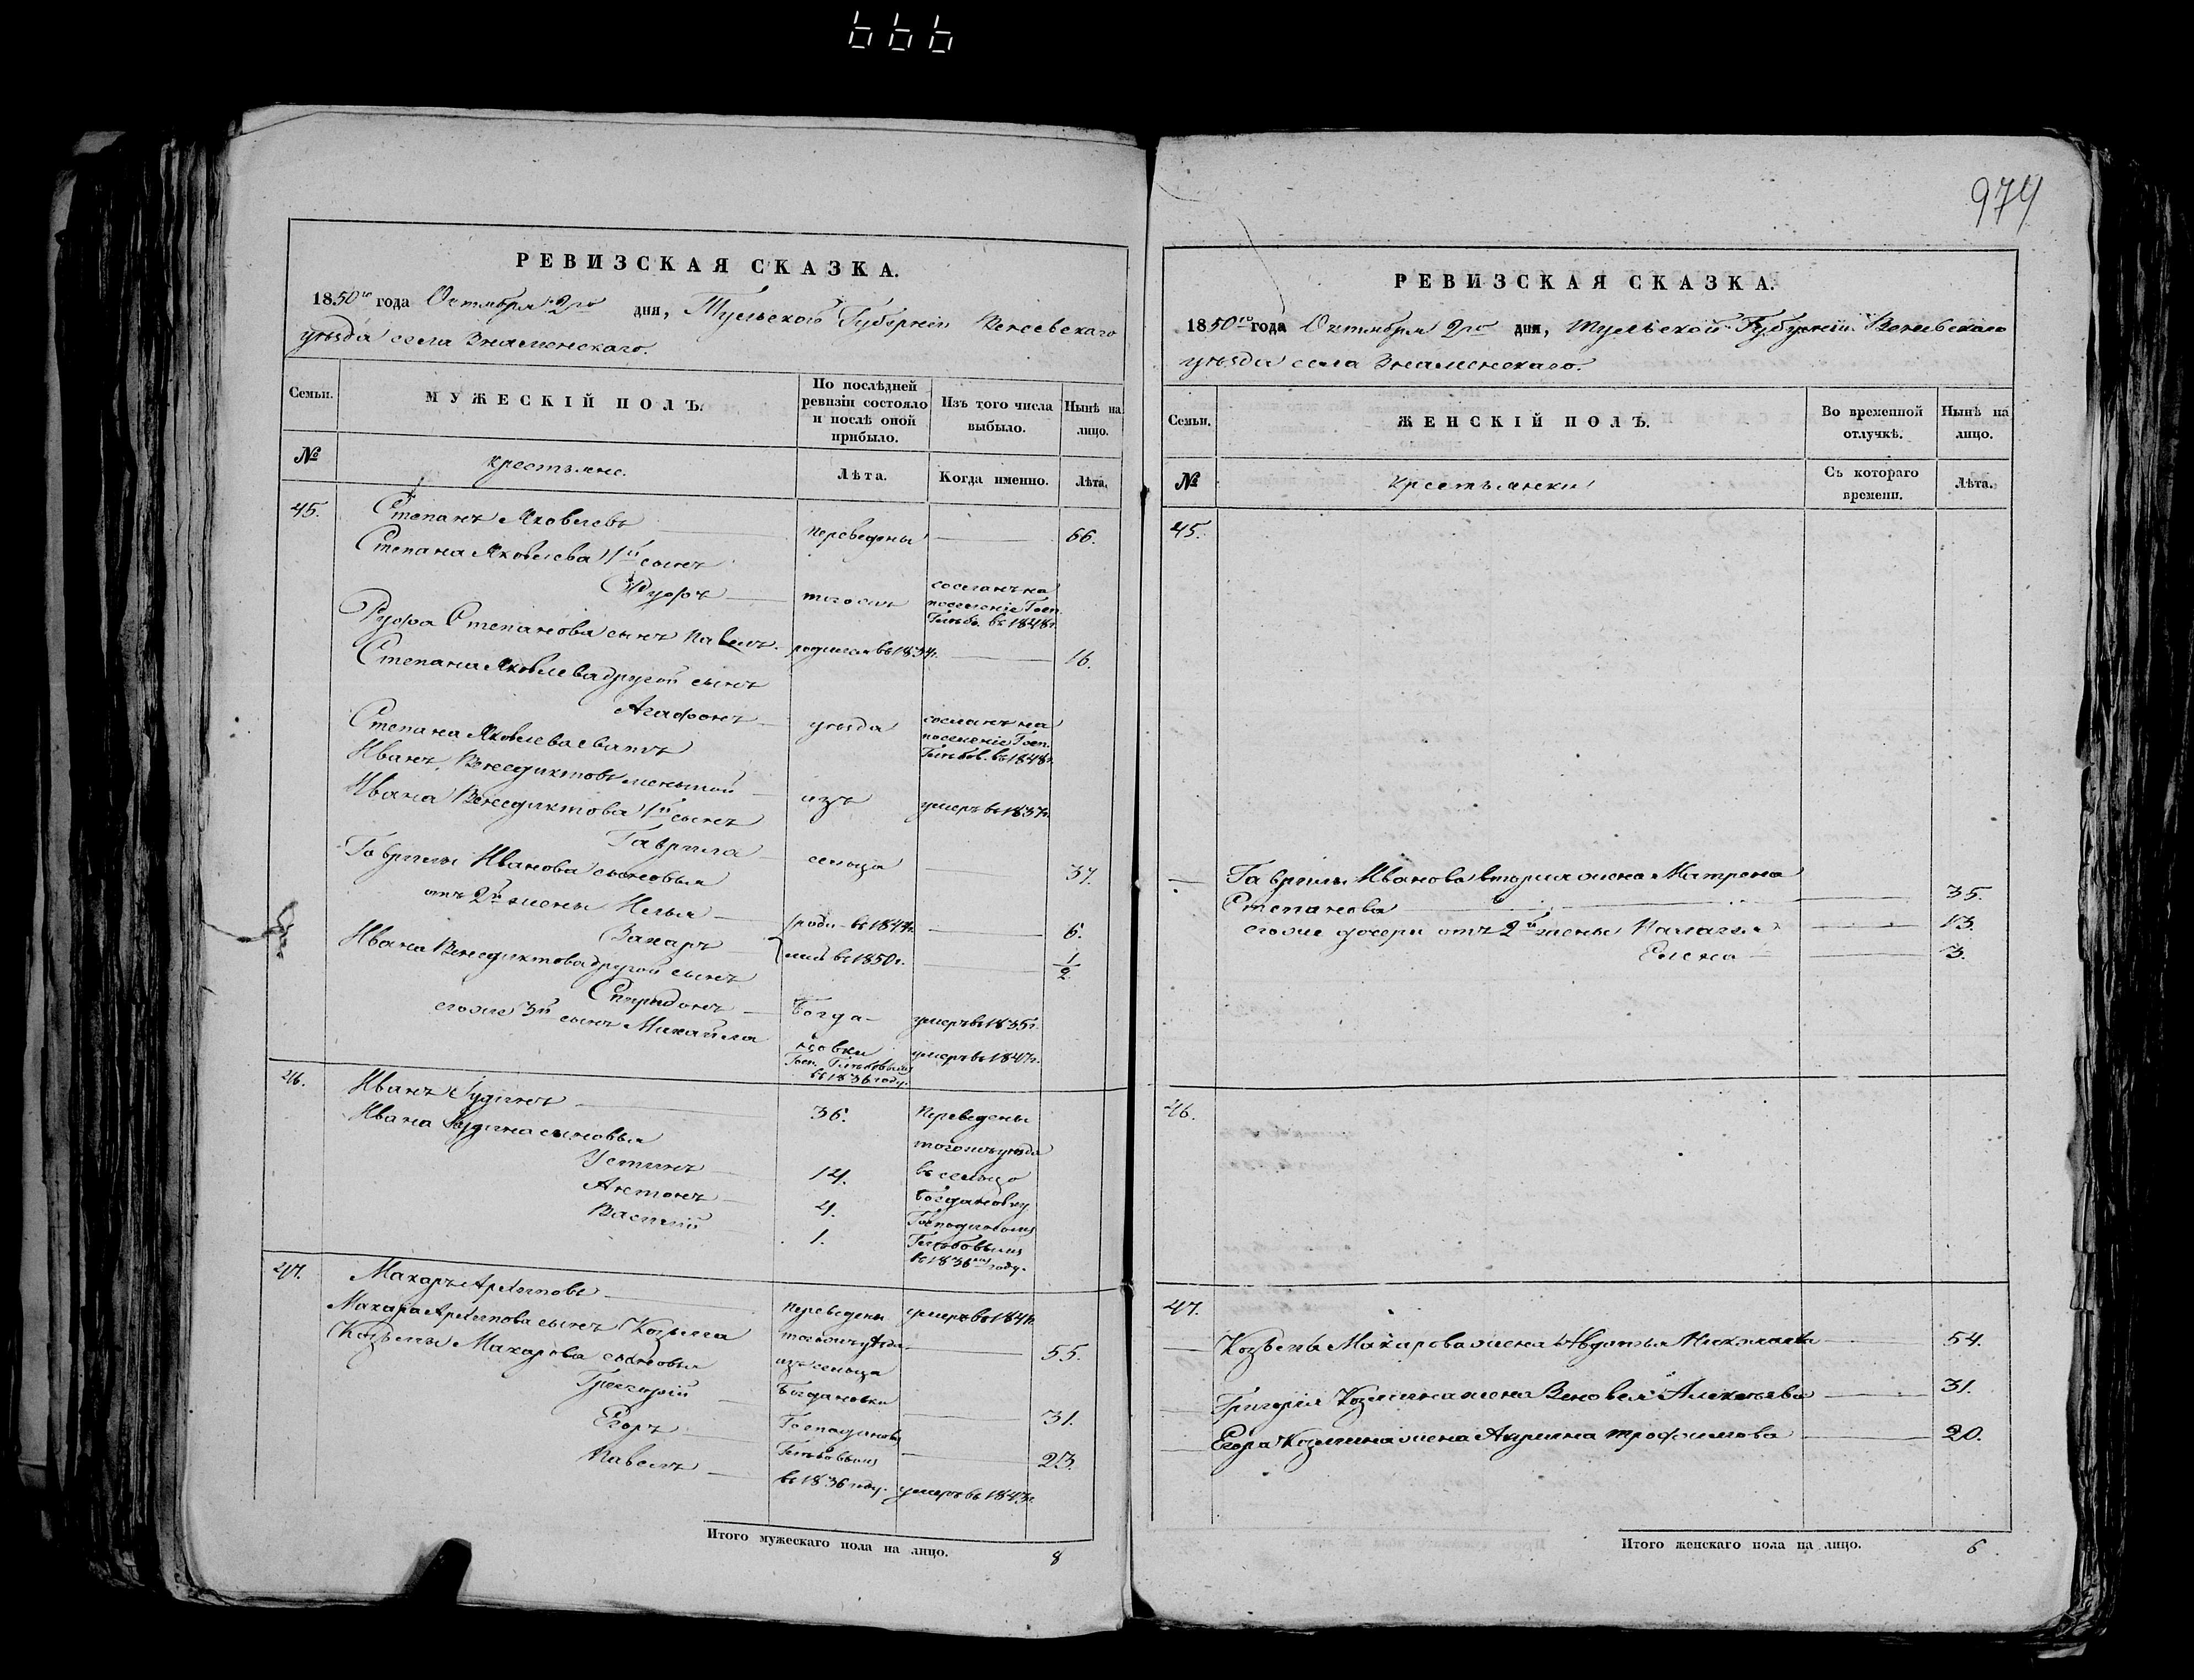 666
974
РЕВИЗСКАЯ СКАЗКА.
1850го года Октября 2го дня, Тульской Губернiи Веневскаго
уѣзда села Знаменскаго.
Семьи.
МУЖЕСКIЙ ПОЛЪ.
По послѣдней ревизiи состояло и послѣ оной прибыло.
Изъ того числа выбыло.
Нынѣ на лицо.
№
крестьяне.
Лѣта.
Когда именно.
Лѣта.
45.
Степанъ Яковлевъ переведены 66.
Степана Яковлева 1й сынъ
тогожъ сосланъ на поселенiе Госп. Глѣбо. въ 1848г.
Степанова сынъ Павелъ родился въ 1834г. 16.
Степана Яковлева другой сынъ
Агафонъ уѣзда сосланъ на поселенiе Госп. Глѣбов. въ 1848г.
Степана Яковлева сватъ
Иванъ Венедиктовъ меньшой изъ умеръ въ 1837г.
Ивана Венедиктова 1й сынъ
Гаврила сельца 37.
Гаврилы Иванова сыновья
отъ 2й жены Илья роди- въ 1844г. 6.
Захаръ лись въ 1850г. 1/2
Ивана Венедиктова другой сынъ
Спиридонъ Богда- умеръ въ 1835г.
егоже 3й сынъ Михайла новки Госп. Глѣбовыми въ 1836 году. умеръ въ 1847г.
46.
Иванъ Iудинъ 36. Переведены
Ивана Iудина сыновья тогожъ уѣзда
Устинъ 14. въ сельцо
Антонъ 4. Богдановку
Василiй 1. Господиномъ Глѣбовымъ въ 1836мъ году.
47.
Макаръ Архиповъ переведены умеръ въ 1841г.
Макара Архипова сынъ Козьма тогожъ уѣзда 55.
Козьмы Макарова сыновья изъ сельца
Григорiй Богдановки 31.
Егоръ Господиномъ Глѣбовымъ 23.
Павелъ въ 1836 году. умеръ въ 1843г.
Итого мужескаго пола на лицо. 8
РЕВИЗСКАЯ СКАЗКА.
1850го года Октября 2го дня, Тульской Губернiи Веневскаго
уѣзда села Знаменскаго.
Семьи.
ЖЕНСКIЙ ПОЛЪ.
Во временной отлучкѣ.
Нынѣ на лицо.
№
крестьянки
Съ котораго времени.
Лѣта.
45.
Гаврилы Иванова вторая жена Матрена
Степанова 35.
егоже дочери отъ 2й жены Палагея 13.
Елена 3.
46.
47.
Козьмы Макарова жена Авдотья 54.
Григорiя Козмина жена Зеновея Алексѣева 31.
Егора Козмина жена Акулина Трофимова 20.
Итого женскаго пола на лицо. 6